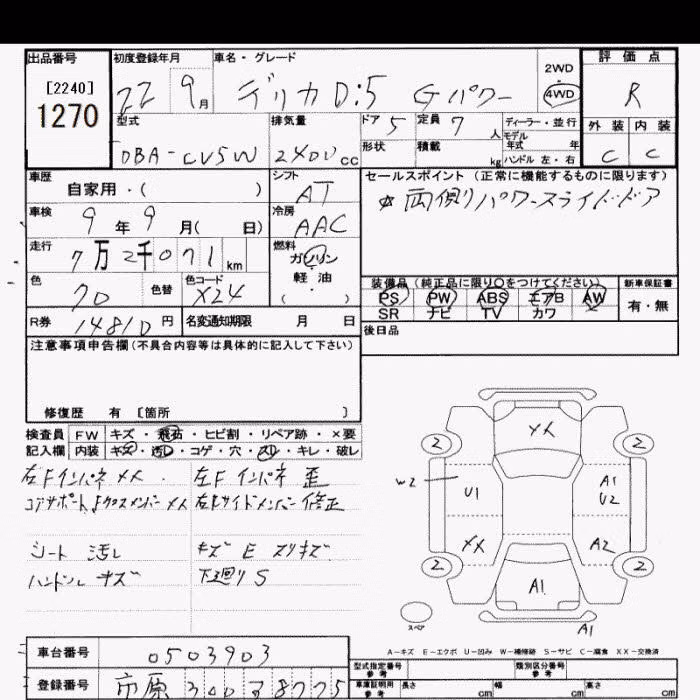 出品番号
[2240]
1270
初度登録年月
22 9月
車名・グレード
デリカD:5 Gパワー
2WD
4WD
評価点
R
型式
DBA-CV5W
排気量
2400cc
ドア 5
定員 7人
形状
積載 kg
ディーラー・並行
モデル
年式 年
ハンドル 左・右
外装 内装
C C
車歴
自家用・( )
シフト
AT
セールスポイント(正常に機能するものに限ります)
☆両側パワースライドドア
車検
9年9月( 日)
冷房
AAC
走行
7万2千071km
燃料
ガソリン
軽・油
( )
色
色替
色コード
X24
装備品(純正品に限り○をつけてください)
PS PW ABS エアB AW
SR ナビ TV カワ
新車保証書
有・無
R券 14810円
名変通知期限 月 日
後日品
注意事項申告欄(不具合内容等は具体的に記入して下さい)
修復歴 有 [箇所 ]
検査員 FW キズ・飛石・ヒビ割・リペア跡・×要
記入欄 内装 キズ・汚レ・コゲ・穴・スレ・キレ・破レ
左Fインパネ XX 左Fインパネ 歪
コアサポート、Fクロスメンバー XX 左Fサイドメンバー修正
シート 汚レ キズ E スリキズ
ハンドル キズ 下廻り S
XX
2 2
W2
U1
A1
U2
XX
A2
2 2
A1
スペア
A1
A-キズ E-エクボ U-凹み W-補修跡 S-サビ C-腐食 XX-交換済
車台番号
0503903
登録番号
市原
型式指定番号
参考
類別区分番号
参考
車庫証明用
参考
長さ cm 幅 cm 高さ cm